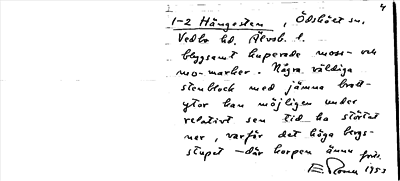 4
1-2 Hängesten, Ödskölt sn.
Vedbo hd. Älvsb. l.
blygsamt kuperade mose- och
mo-marker. Några väldiga
stenblock med jämna brott-
ytor kan möjligen under
relativt sen tid ha störtat
ner, varför det höga bergs-
stupet – där korpen ännu
1953